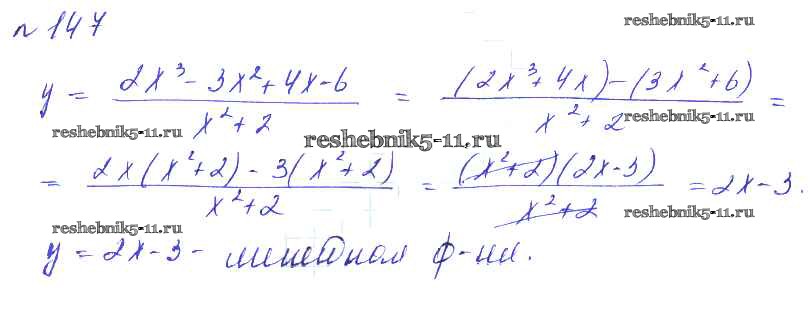 № 147
reshebnik5-11.ru
y = (2x³ - 3x² + 4x - 6)/(x² + 2) = ((2x³ + 4x) - (3x² + 6))/(x² + 2) =
reshebnik5-11.ru reshebnik5-11.ru
reshebnik5-11.ru
= (2x(x² + 2) - 3(x² + 2))/(x² + 2) = ((x² + 2)(2x - 3))/(x² + 2) = 2x - 3.
reshebnik5-11.ru reshebnik5-11.ru
y = 2x - 3 - линейная ф-ия.